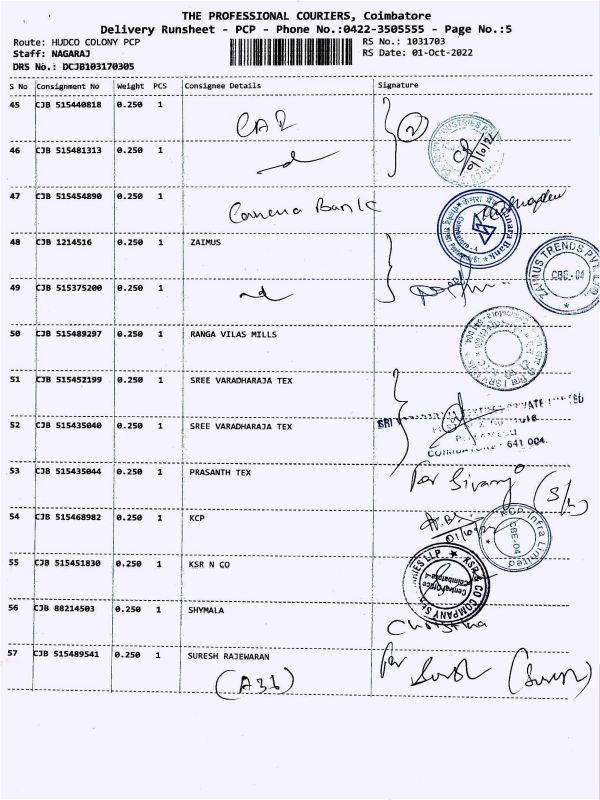 THE PROFESSIONAL COURIERS, Coimbatore
Delivery Runsheet - PCP - Phone No.:0422-3505555 - Page No.:5
Route: HUDCO COLONY PCP RS No.: 1031703
Staff: NAGARAJ RS Date: 01-Oct-2022
DRS No.: DCJB103170305
S No Consignment No Weight PCS Consignee Details Signature
45 CJB 515440818 0.250 1
46 CJB 515481313 0.250 1
47 CJB 515454890 0.250 1 Bank
48 CJB 1214516 0.250 1 ZAIMUS
ZAIMUS TRENDS PVT. LTD.
CBE-04
49 CJB 515375200 0.250 1
50 CJB 515489297 0.250 1 RANGA VILAS MILLS
51 CJB 515452199 0.250 1 SREE VARADHARAJA TEX
52 CJB 515435040 0.250 1 SREE VARADHARAJA TEX
SRI PRIVATE LIMITED
COIMBATORE - 641 004.
53 CJB 515435044 0.250 1 PRASANTH TEX
54 CJB 515468982 0.250 1 KCP
KCP Infra Limited
CBE-04
55 CJB 515451830 0.250 1 KSR N CO
KSR & CO COMPANY LLP
56 CJB 88214503 0.250 1 SHYMALA
Christina
57 CJB 515489541 0.250 1 SURESH RAJEWARAN
(A31)